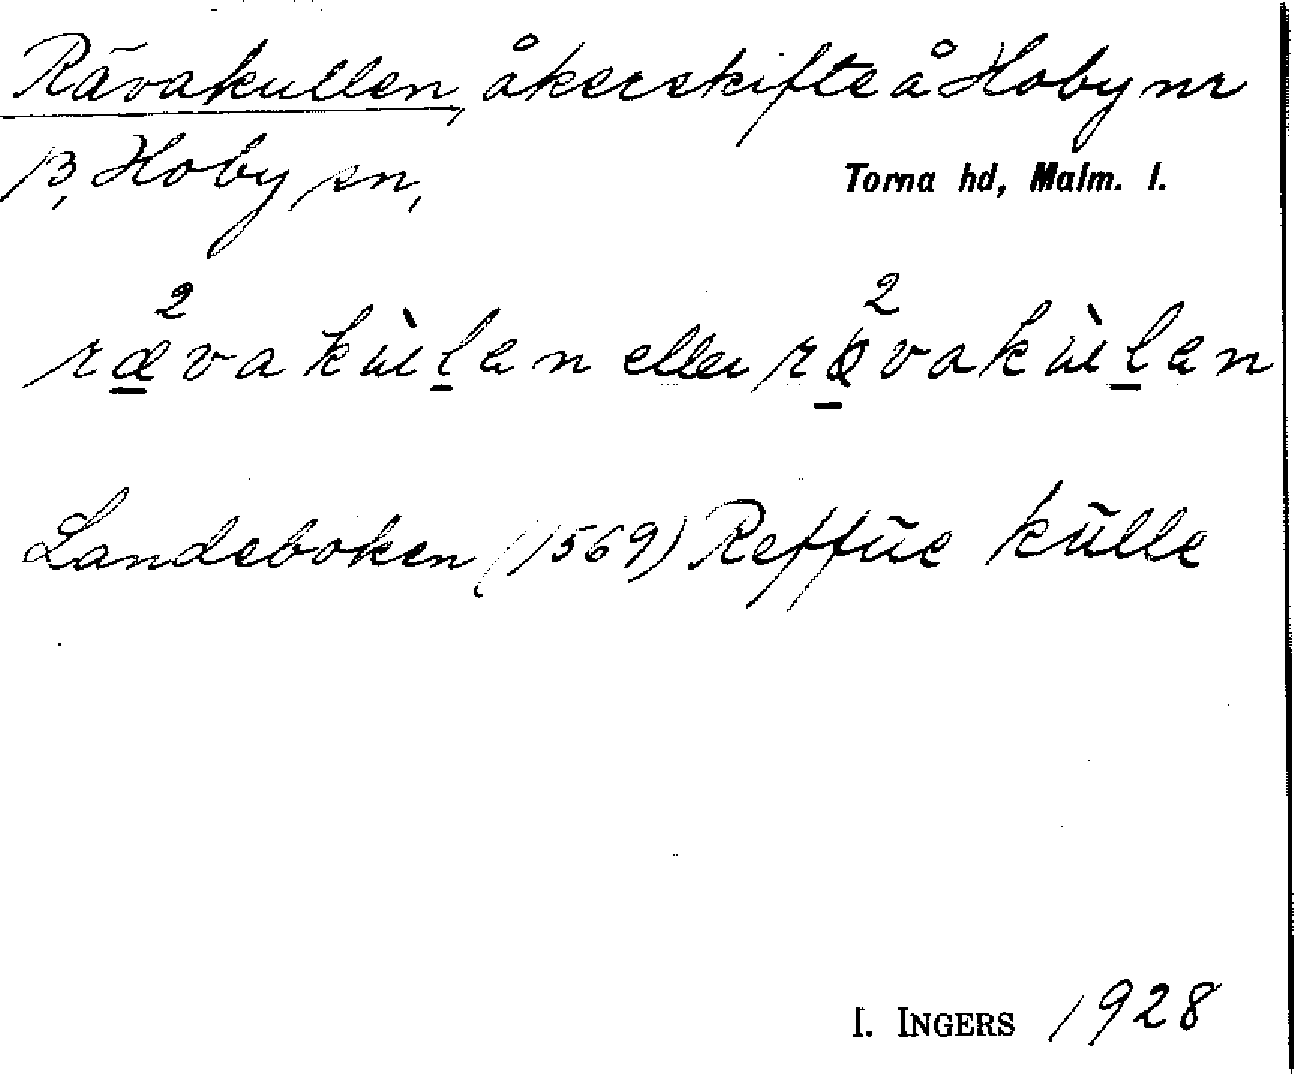 Rävakullen, åkerskifte å Hoby nr
13, Hoby sn, Torna hd, Malm. l.
ræ̲²vakùl̲an eller rø̲²vakùl̲an
Landeboken (1569) Reffūe kūlle
I. INGERS 1928